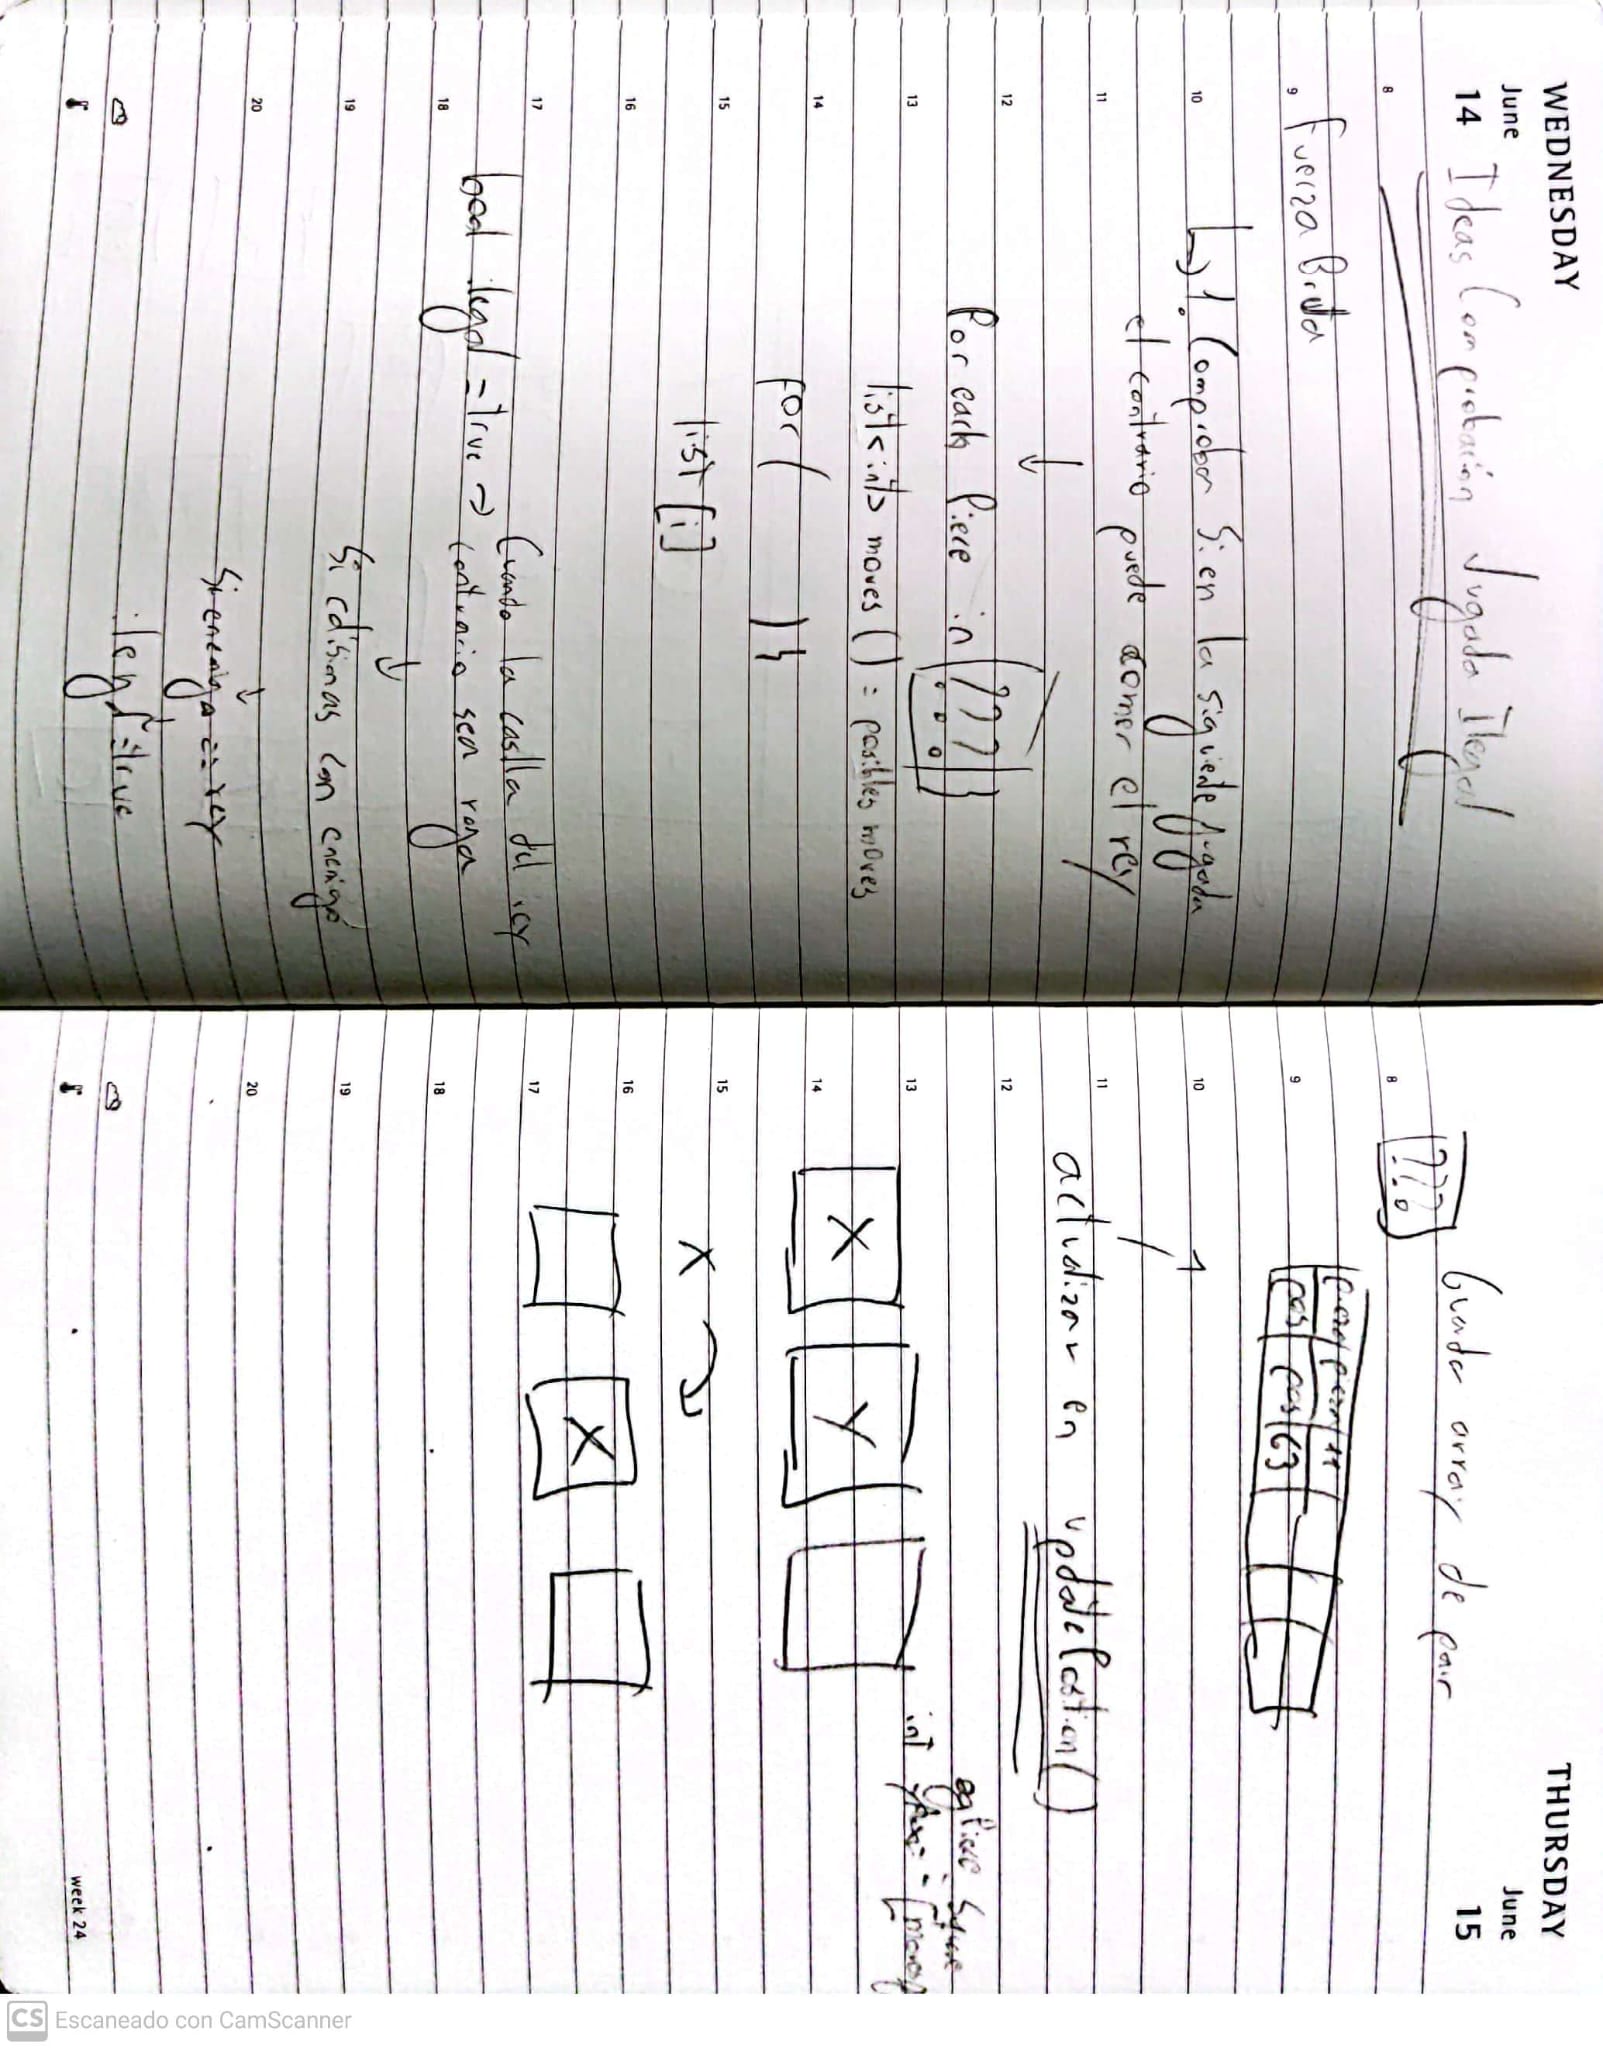 WEDNESDAY
June
14
Ideas Comprobación Jugada Ilegal
8
Fuerza Bruta
9
10
↳ 1. Comprobar Si en la siguiente jugada
el contrario puede comer el rey
11
12
For each Piece in ??? }
13
list<int> moves () = posibles moves
14
for ( ) {
15
list [i]
16
17
Cuando la casilla del rey
bool ilegal = true → contrario sea roja
18
Si colisionas con enemigo
19
20
Si enemigo == rey
ilegal = true
THURSDAY
June
15
??? Guarda array de pair
8
pieza pieza 11
9
pos pos 63
10
11
actualizar en updatePosition()
12
int
13
X Y
14
15
X
16
X
17
18
19
20
week 24
CS Escaneado con CamScanner